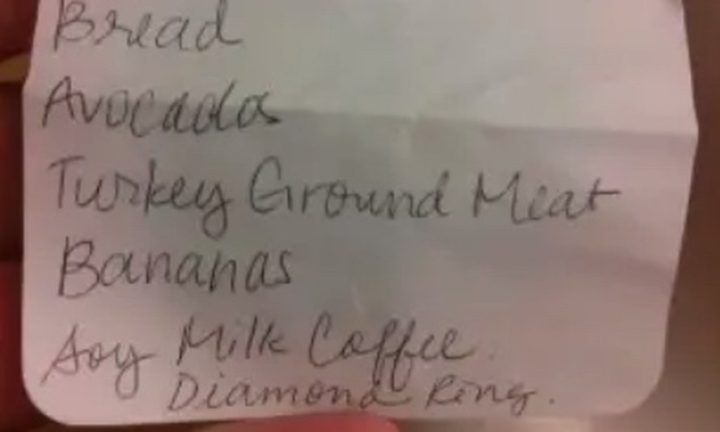 Bread
Avocados
Turkey Ground Meat
Bananas
Soy Milk Coffee.
Diamond Ring.